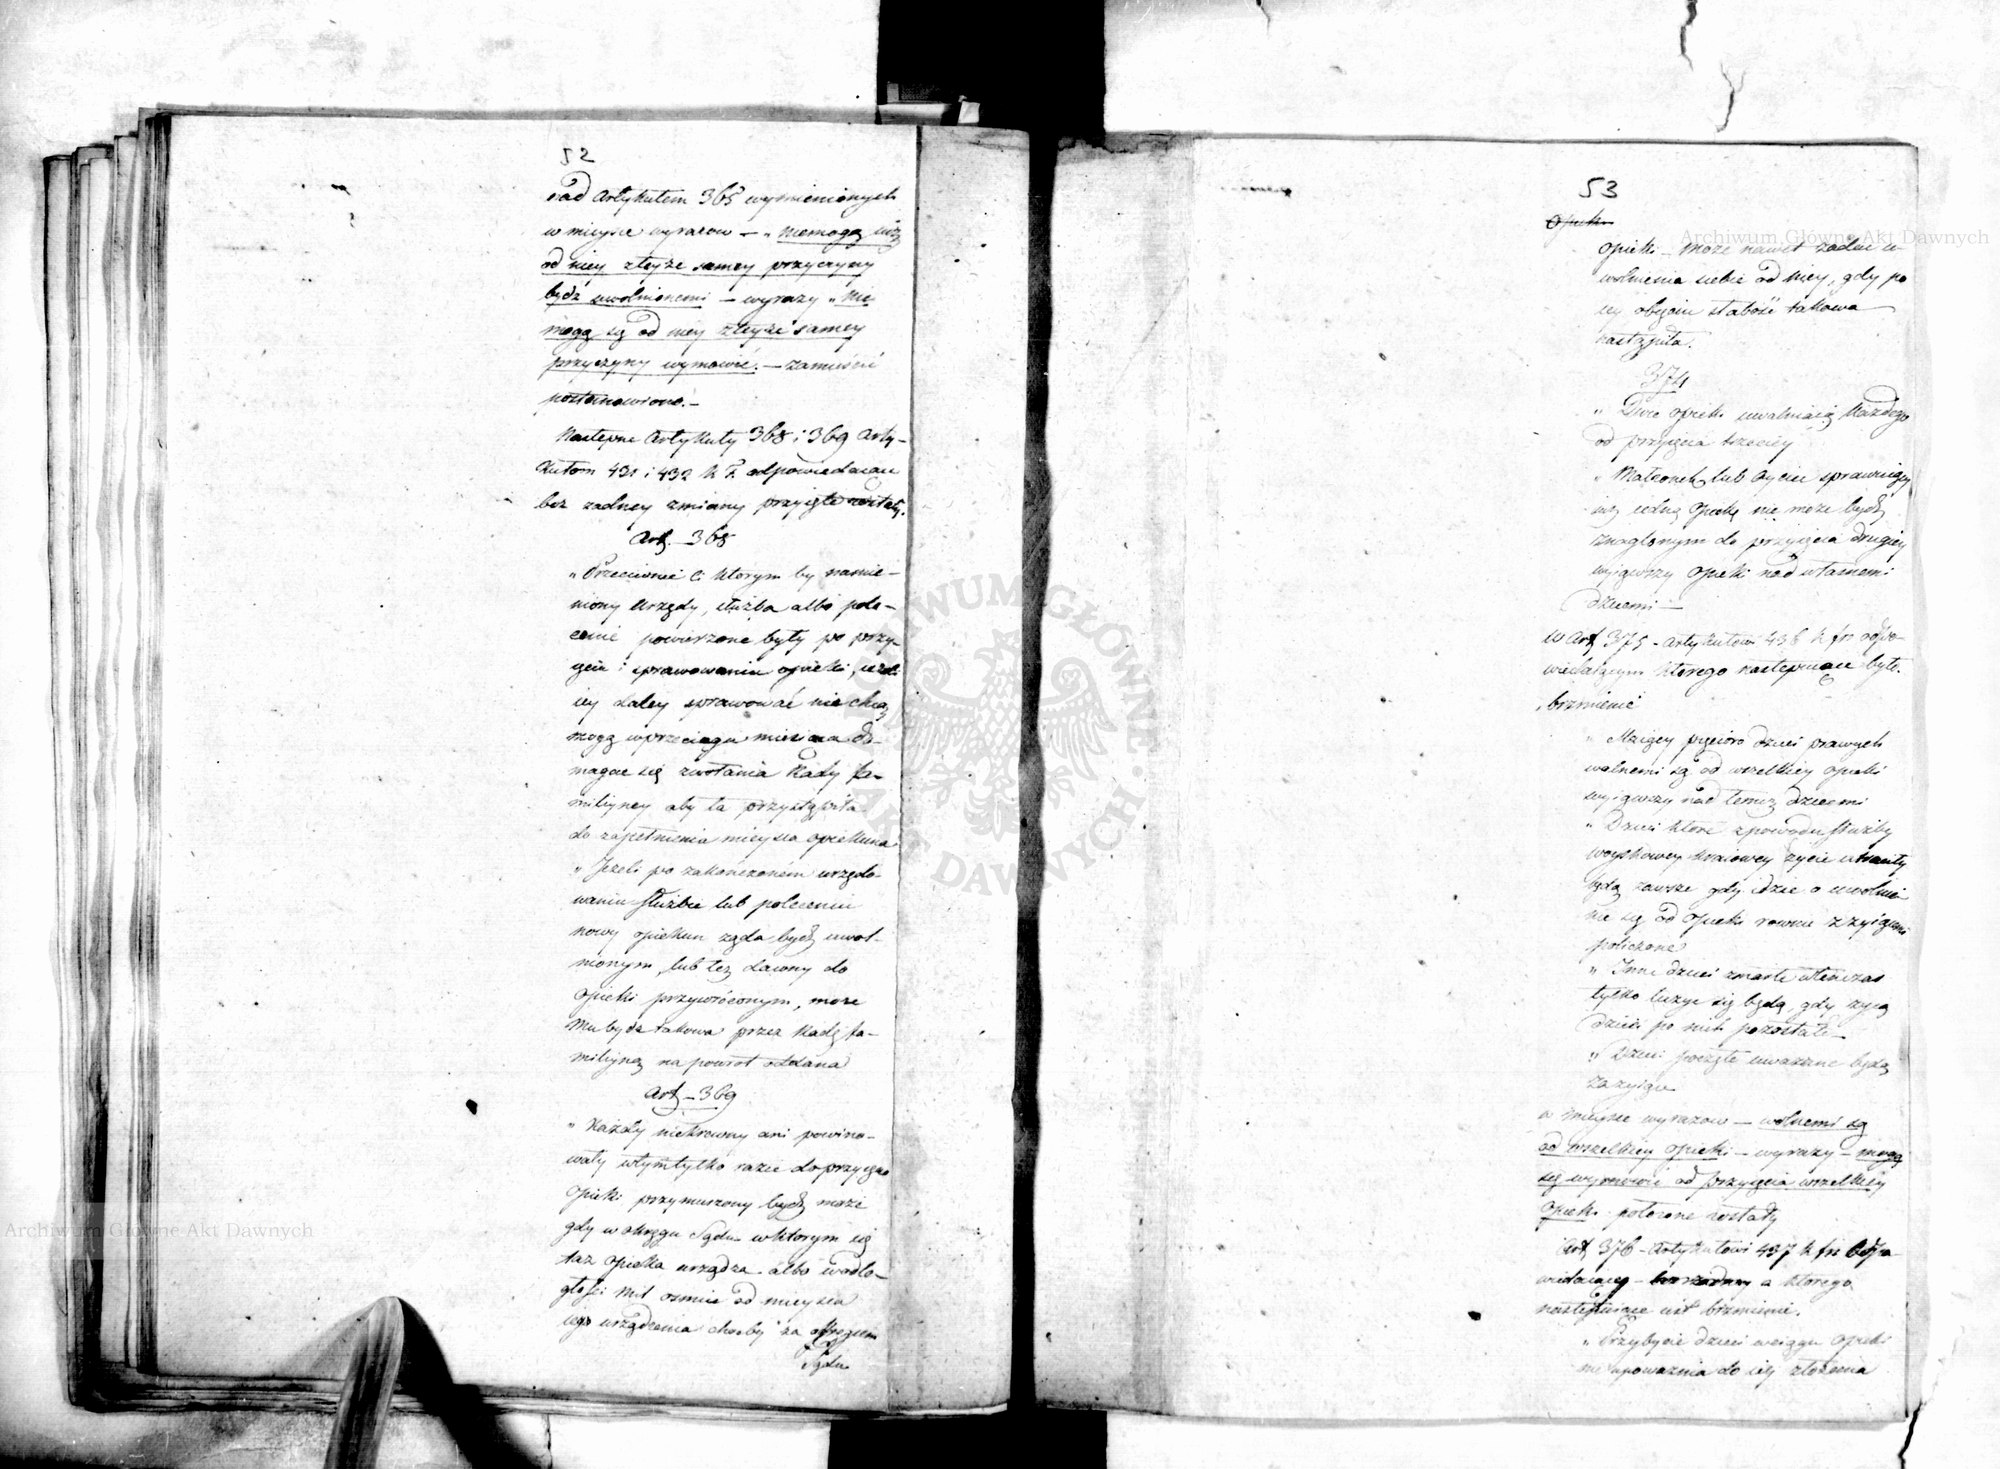 52
nad Artykułem 365 wymienionych
w mieysce wyrazow – „niemogą iuż
od niey zteyże samey przyczyny
bydź uwolnionemi – wyrazy „Nie
mogą się od niey zteyże samey
przyczyny wymowić. – zamieścić
postanowiono. –
Następne Artykuły 368 i 369 Arty-
kułom 431 i 432 K F. odpowiedaiące
bez żadney zmiany przyięte zostały.
Art. – 368
„Przeciwnie Ci ktorym by namie-
niony Urzędy, służba albo pole-
cenie powierzone były po przy-
ięciu i sprawowaniu opieki, ieżeli
iey daley sprawować nie chcą
mogą wprzeciągu miesiąca do-
magać się zwołania Rady fa-
miliyney aby ta przystąpiła
do zapełnienia mieysca opiekuna
„Jeżeli po zakończonem urzędo-
waniu służbie lub poleceniu
nowy opiekun żąda bydź uwol-
nionym, lub też dawny do
opieki przywróconym, może
Mu bydź takowa przez Radę fa-
miliyną na powrót oddana
Art – 369
„Każdy niekrewny ani powino-
waty wtym tylko razie do przyięcia
opieki przymuszony bydź może
gdy w okręgu Sądu wktorym się
taż opieka urządza albo wodle-
głości mil ośmiu od mieysca
iego urządzenia choćby za okręgiem
Sądu
53
opieki – może nawet żądać u-
wolnienia siebie od niey, gdy po
iey obięciu słabość takowa
nastąpiła.
374
„Dwie opieki uwalniaią każdego
od przyięcia trzeciey
„Małżonek lub Oyciec sprawuiący
iuż iedną Opiekę nie może bydź
znaglonym do przyięcia drugiey
wyiąwszy opieki nad własnemi
dziećmi –
W Art 375 – Artykułowi 436 K fr odpo-
wiedaiącym ktorego następuiące było
brzmienie
„Maiący pięcioro dzieci prawych
wolnemi są od wszelkiey opieki
wyiąwszy nad temiż dziećmi
„Dzieci ktore zpowodu służby
woyskowey kraiowey życie utraciły
będą zawsze gdy idzie o uwolnie-
nie się od opieki rownie z żyiącemi
policzone
„Inne dzieci zmarłe wtenczas
tylko liczyć się będą, gdy żyią
dzieci po nich pozostałe –
„Dzieci poczęte uważane będą
za żyiące
w mieysce wyrazow – wolnemi są
od wszelkiey opieki – wyrazy – mogą
się wymowić od przyięcia wszelkiey
opieki położone zostały
Art 376 – Artykułowi 437 K fr odpo-
wiedaiący – a ktorego
następuiące iest brzmienie.
„Przybycie dzieci wciągu opieki
nie upoważnia do iey złożenia
Archiwum Główne Akt Dawnych
Archiwum Główne Akt Dawnych
ARCHIWUM GŁÓWNE AKT DAWNYCH